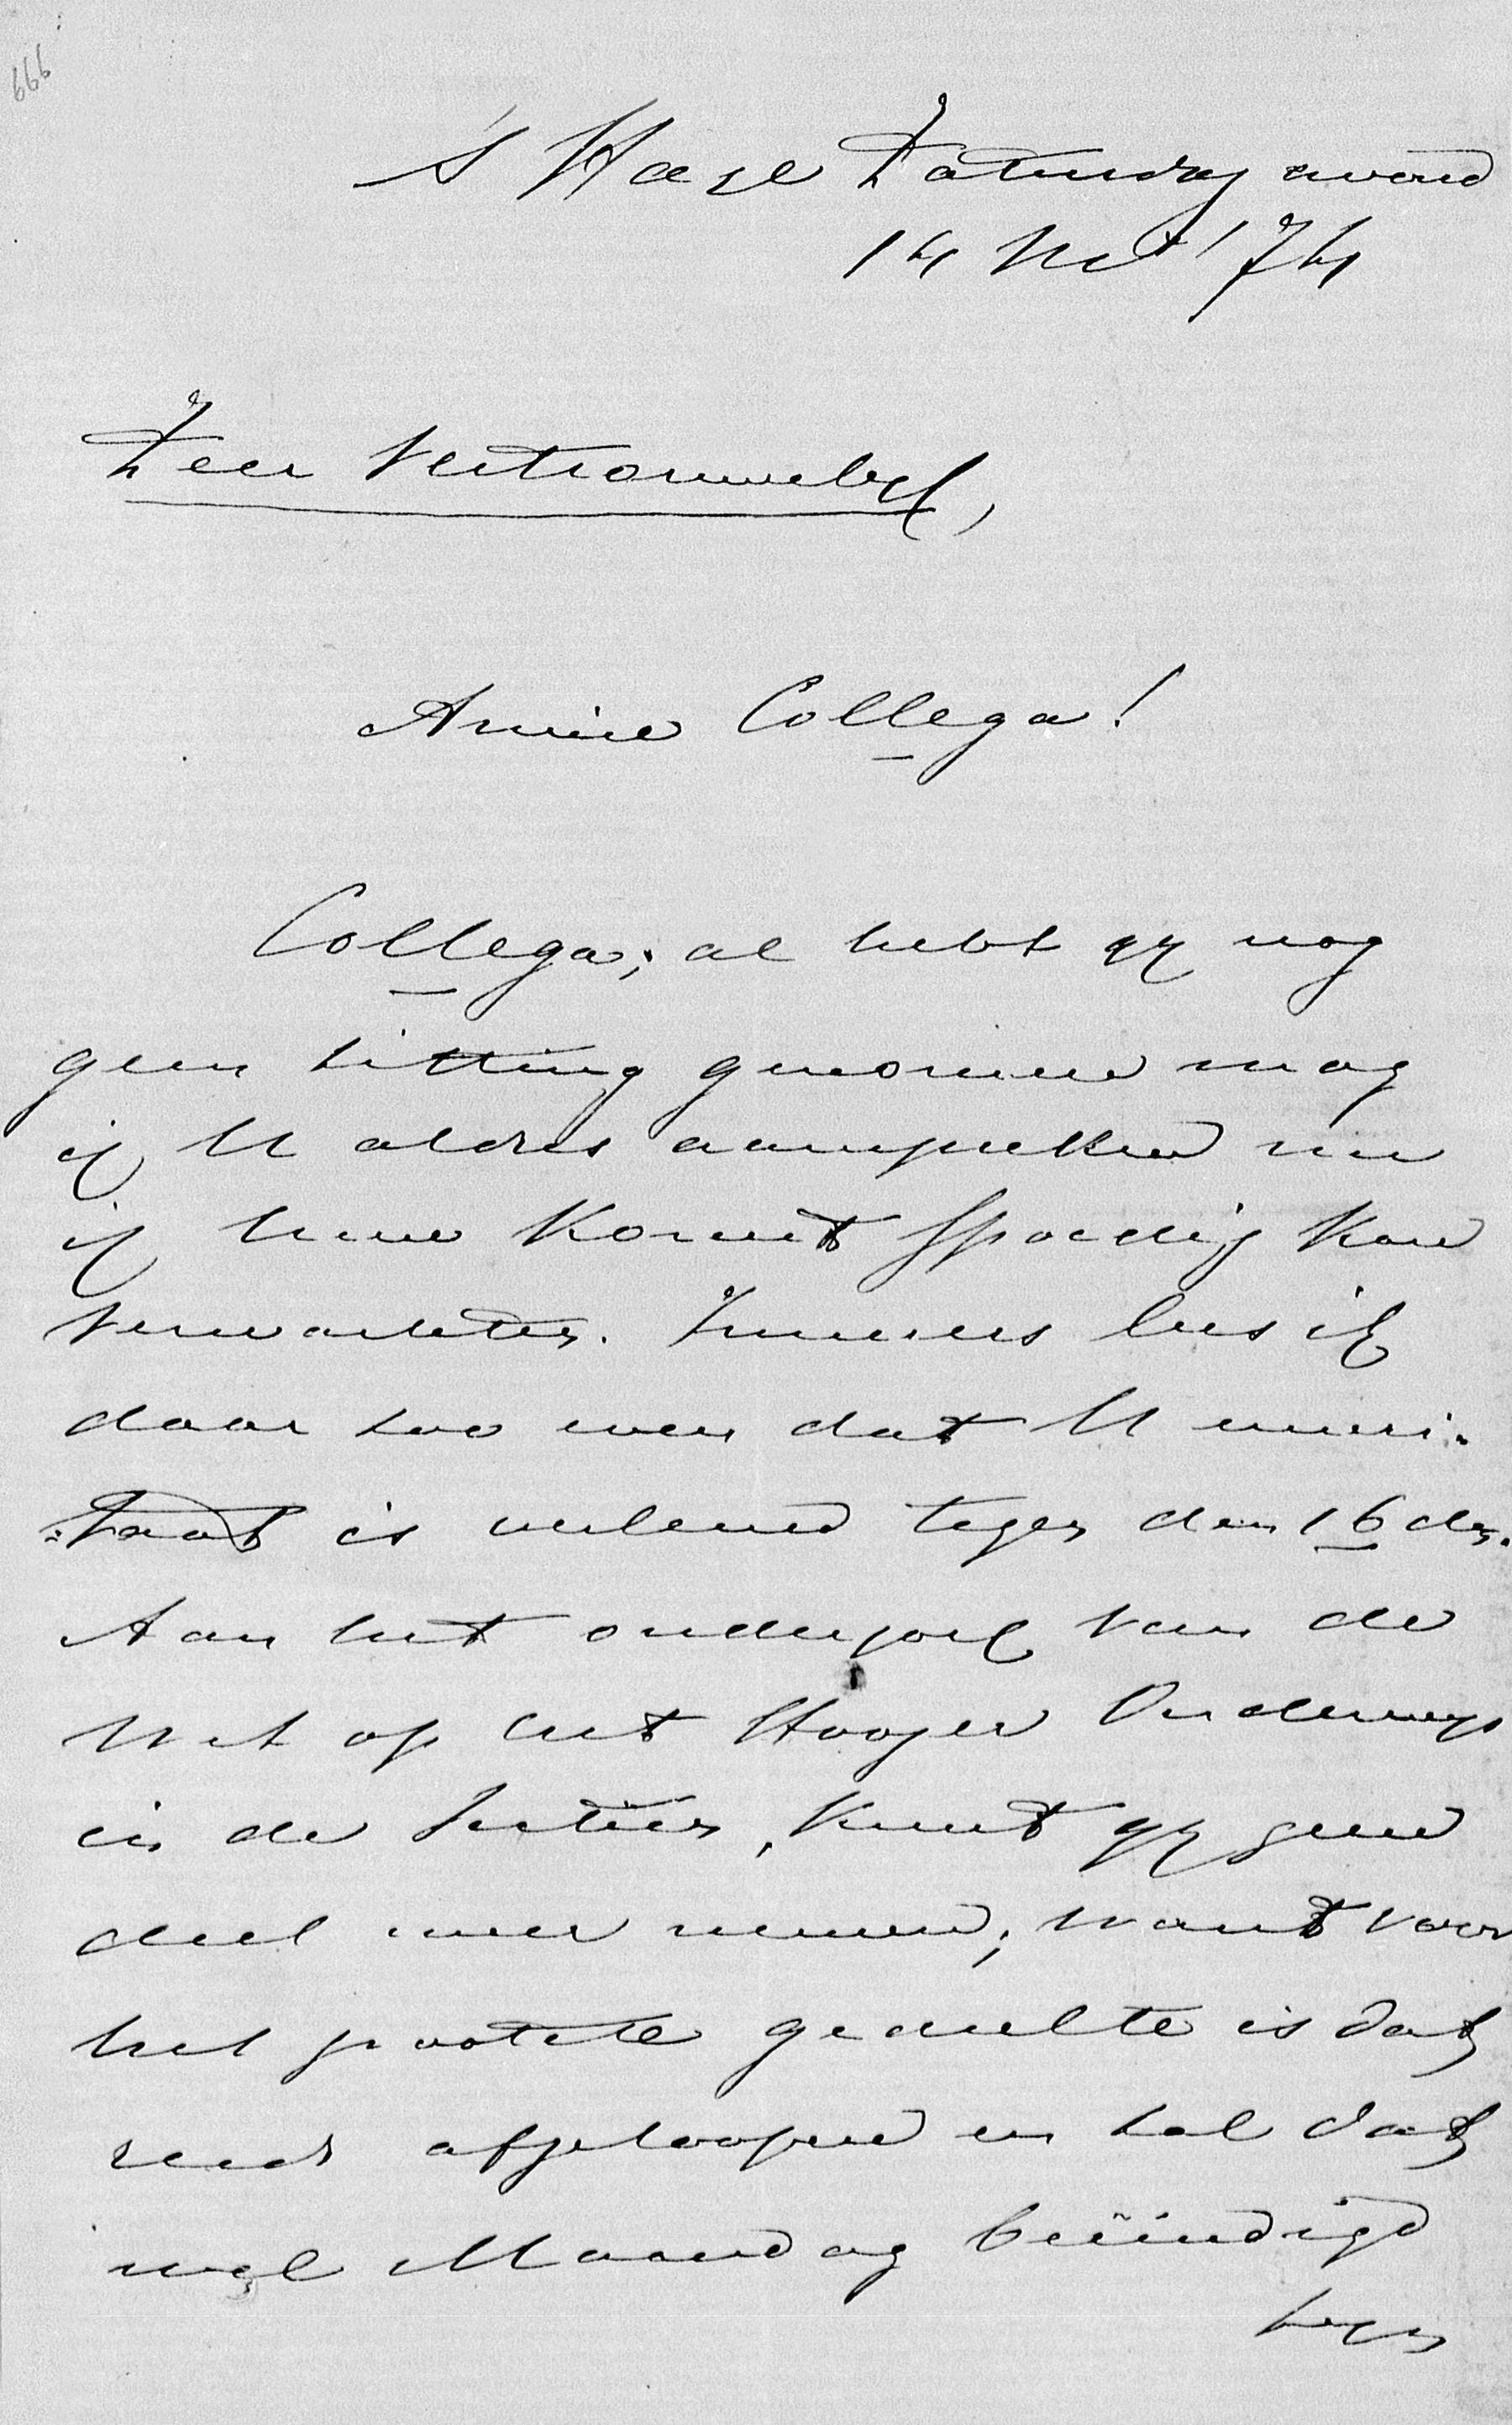 666
's Hage Zaturdag avond
14 Nov '74
Zeer Vertrouwelijk,
Amice Collega!
Collega; al hebt gij nog
geen zitting genomen mag
ik U aldus aanspreken nu
ik Uwe komst spoedig kan
verwachten. Immers lees ik
daar zoo even dat U emeri-
=taat is verleend tegen den 16 dez.
Aan het onderzoek van de
Wet op het Hooger Onderwijs
in de Sectiën, kunt gij geen
deel meer nemen; want voor
het grootste gedeelte is dat
reeds afgeloopen en zal dat
wel Maandag beëindigd
zijn